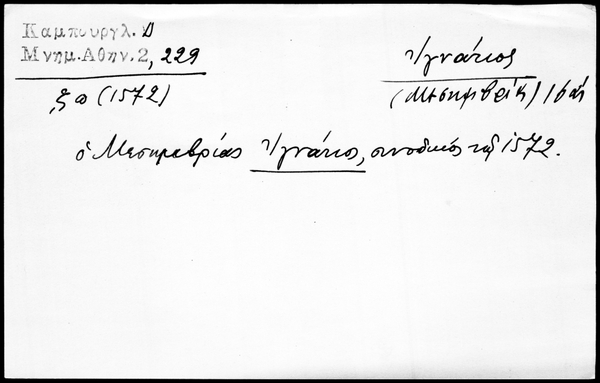 Καμπουργλ. Δ
Μνημ. Αθην. 2, 229
(1572)
Ἰγνάτιος
(Μεσημβρίας)
ὁ Μεσημβρίας Ἰγνάτιος, συνοδικός τοῦ 1572.